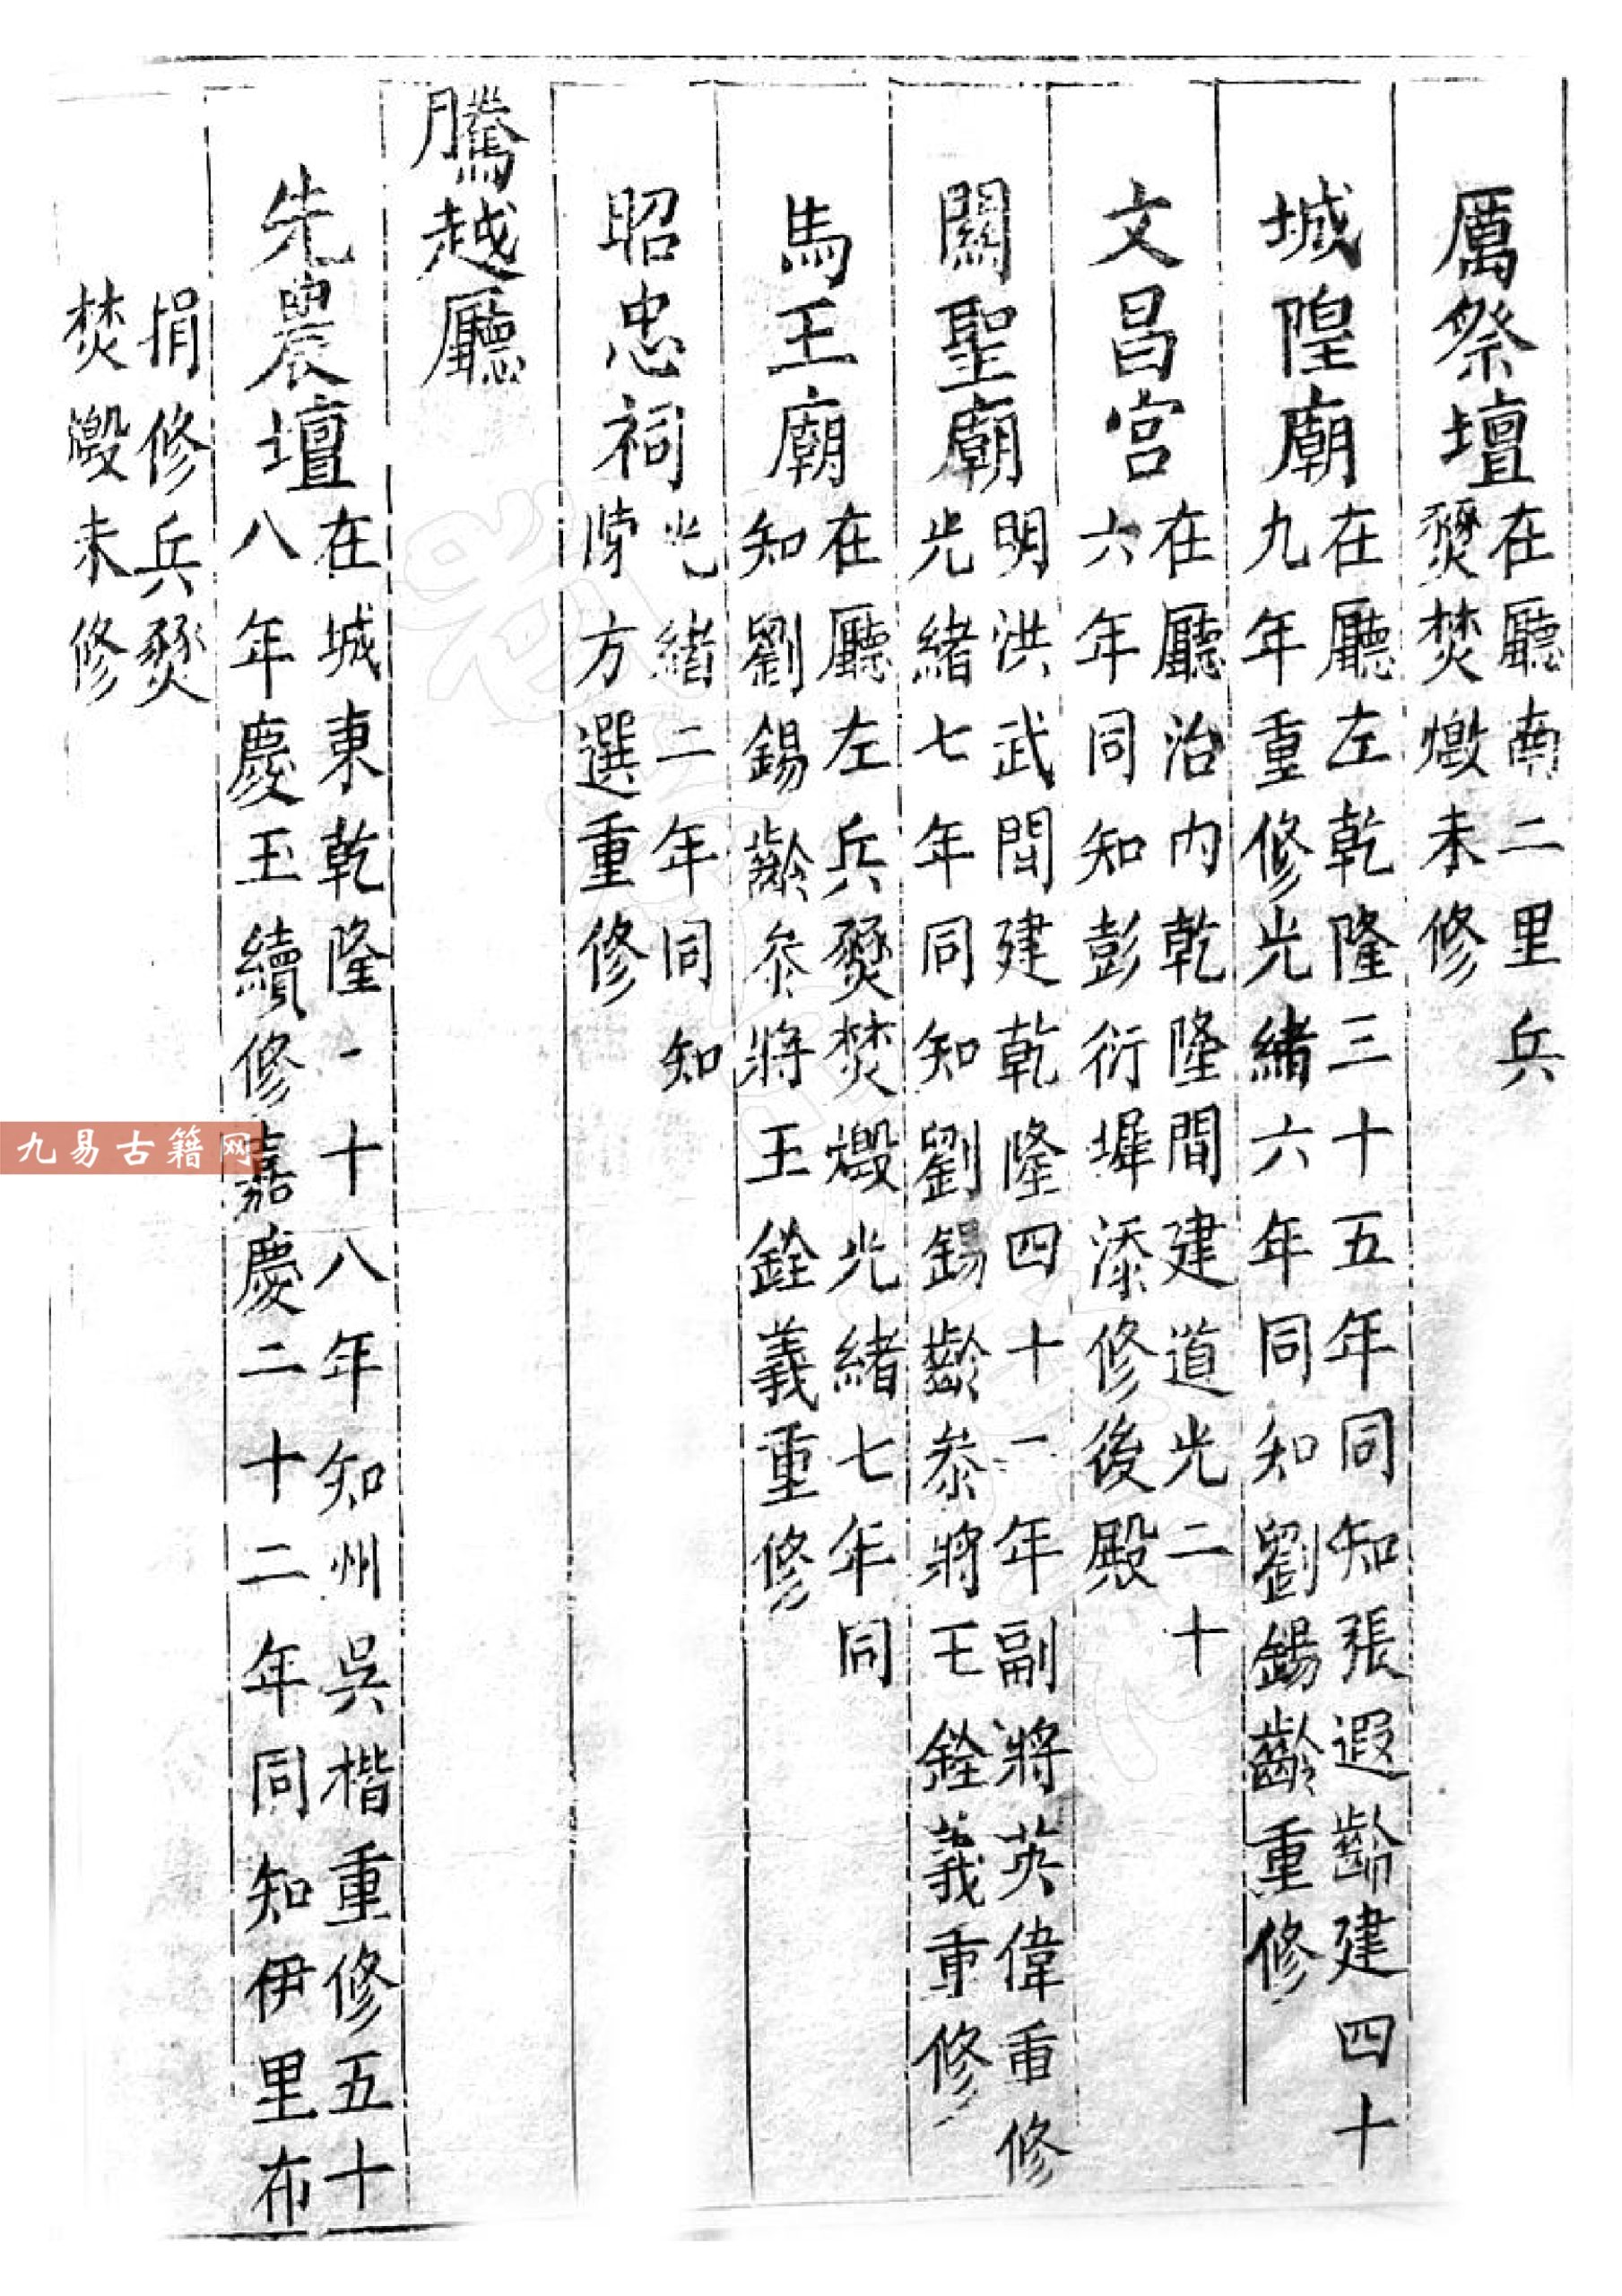 厲祭壇
在廳南二里兵
燹焚燬未修
城隍廟
在廳左乾隆三十五年同知張遐齡建四十
九年重修光緒六年同知劉錫齡重修
文昌宮
在廳治內乾隆間建道光二十
六年同知彭衍墀添修後殿
關聖廟
明洪武間建乾隆四十一年副將英偉重修
光緒七年同知劉錫齡叅將王銓義重修
馬王廟
在廳左兵燹焚燬光緒七年同
知劉錫齡叅將王銓義重修
昭忠祠
光緒二年同知
陳方選重修
騰越廳
先農壇
在城東乾隆一十八年知州吳楷重修五十
八年慶玉續修嘉慶二十二年同知伊里布
捐修兵燹
焚燬未修
九易古籍网